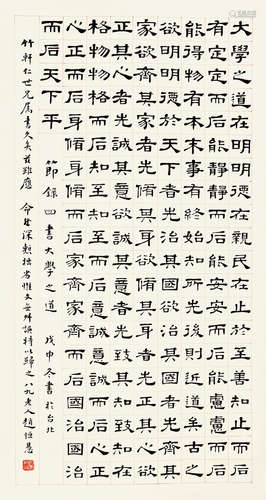 大學之道在明明德在親民在止於至善知止而后
有定定而后能靜靜而后能安安而后能慮慮而后
能得物有本末事有終始知所先後則近道矣古之
欲明明德於天下者先治其國欲治其國者先齊其
家欲齊其家者先脩其身欲脩其身者先正其心欲
正其心者先誠其意欲誠其意者先致其知致知在
格物物格而后知至知至而后意誠意誠而后心正
心正而后身脩身脩而后家齊家齊而后國治國治
而后天下平
節錄四書大學之道 戊申冬書於台北
竹軒仁世兄屬書久矣 應 命 八九老人趙恒惖